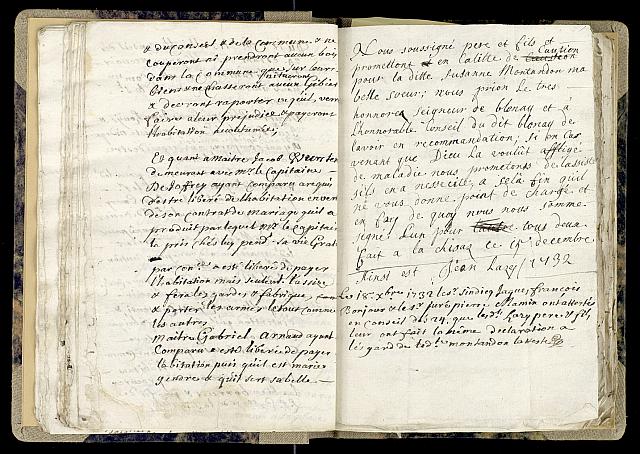 & du Conseil & de la Commune & ne
Couperont ni prendront aucun bois
dans la Commune que sur leurs
biens ne chasseront aucun Gibier
& devront raporter ce qu'il, verr
faire a leur prejudice & payeront
l'habitation acoutumée,
Et quant a Maitre Jacob
demeurant avec Mr. le Capitaine
De Joffrey ayant comparu a requi
d'estre liberé de l'habitation en ver
de son contrat de mariage qu'il a
produit par lequel Mr. le Capitaine
la pris chés luy pend. sa vie
par con. a esté liberé de payer
l'habitation mais seulem. la
& fera les gardes & fabrique, comm
& porter les armes le tout comme
les autres
Maitre Gabriel Arnaud ayant
Comparu a esté liberé de payer
l'abitation puis qu'il est marié
gendre & qu'il sert sa belle
Nous soussigné pere et fils et
promettont en calité de Caution
pour la ditte Susanne Montandon ma
belle soeur; nous prion Le tres
honnoré seigneur de blonay et à
L'honnorable Conseil du dit blonay de
l'avoir en recommandation; si en Cas
venant que Dieu La voulut affligé
de maladie nous prometons de l'assisté
sils en a nescecité, a celà fin qu'il
ne vous donne point de charge et
en foy de quoy nous nous somme
signé L'un pour tous deux
fait a la chisaz ce 15e decembre
Ainsi est Jean Lazy 1732
Le 18e. xbre 1732 les Srs. sindicq Jaques françois
Bonjour & le Sr. juré pierre Mamin ont attestés
en conseil des 24, que les ds. Lazy pere & fils
leur ont fait la même declaration a
l'égard de lad. montandon